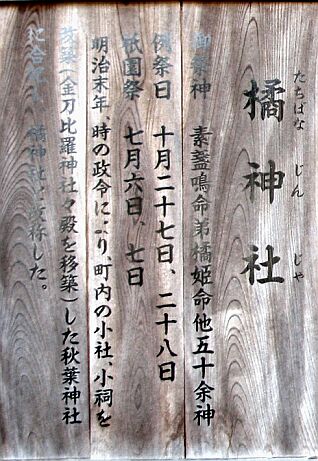 たちばな じん じゃ
橘神社
御祭神 素盞嗚命弟橘姫命他五十余神
例祭日 十月二十七日、二十八日
祇園祭 七月六日、七日
明治末年、時の政令により、町内の小社、小祠を
改築(金刀比羅神社々殿を移築)した秋葉神社
に合祀し、橘神社と改称した。